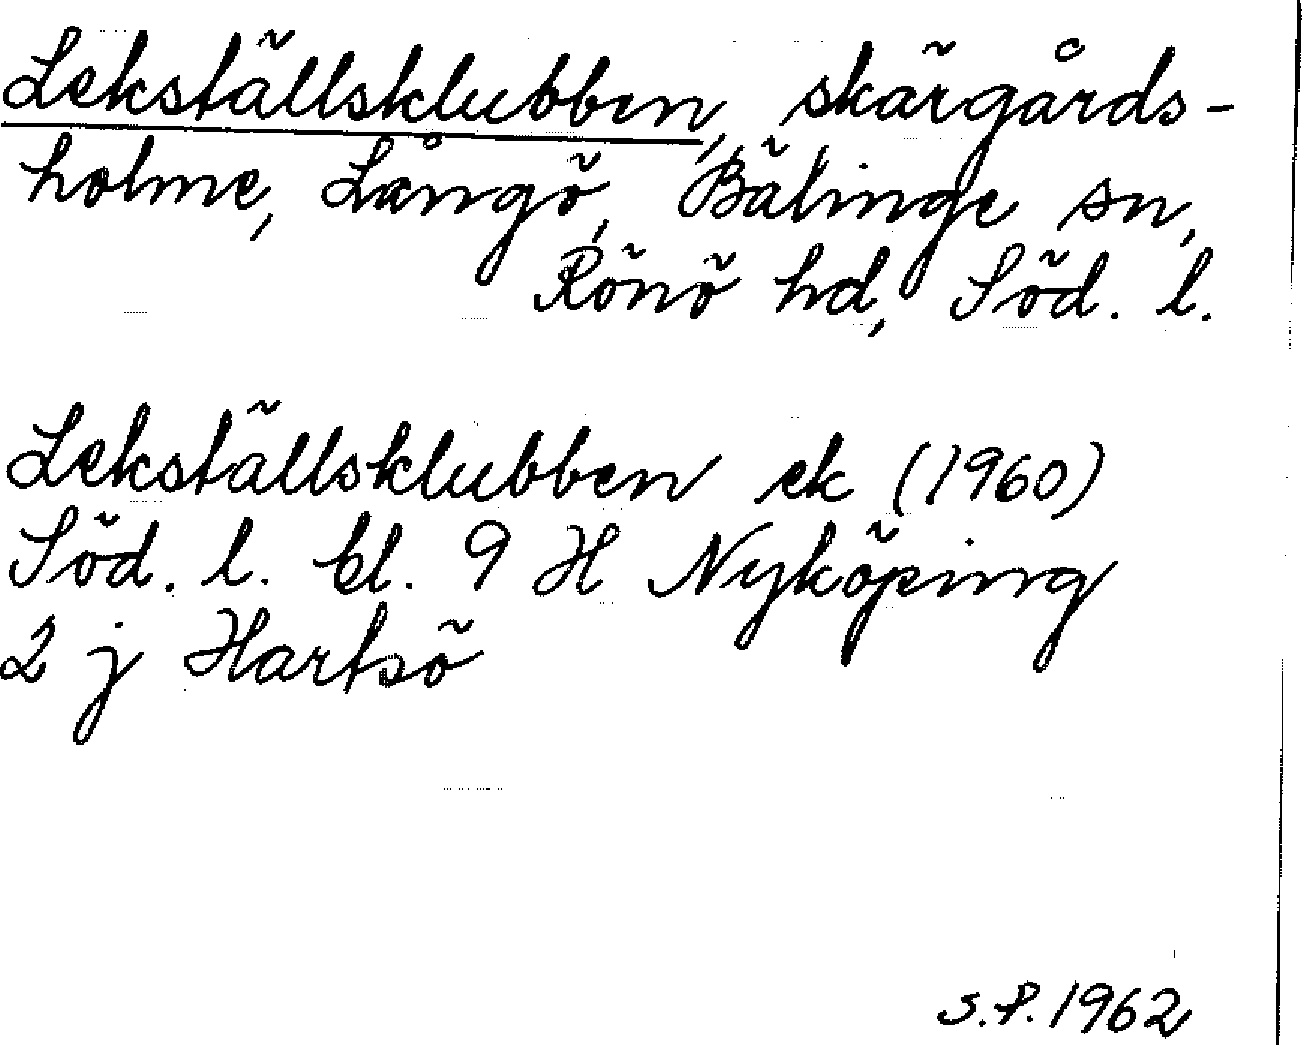 Lekställsklubben, skärgårds-
holme, Långö, Bälinge sn,
Rönö hd, Söd. l.
Lekställsklubben ek (1960)
Söd. l. bl. 9 H Nyköping
2 j Hartsö
S.P. 1962